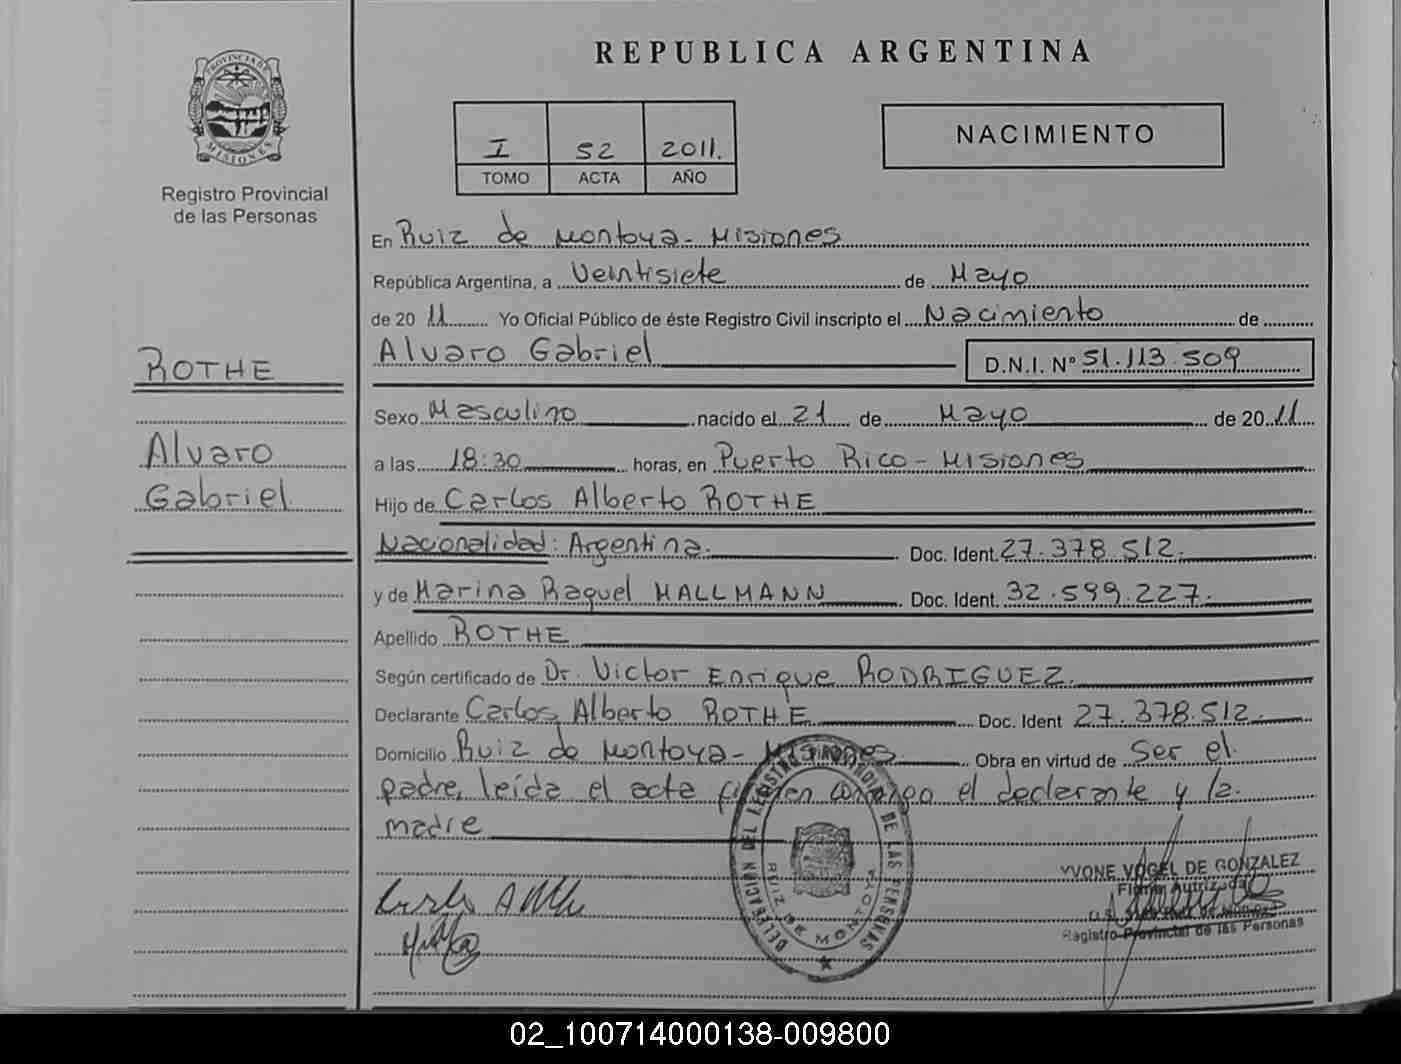 PROVINCIA DE
MISIONES
Registro Provincial
de las Personas
ROTHE
Alvaro
Gabriel
REPUBLICA ARGENTINA
I 52 2011.
TOMO ACTA AÑO
NACIMIENTO
En Ruiz de Montoya - Misiones
República Argentina, a Veintisiete de Mayo
de 20 11 Yo Oficial Público de éste Registro Civil inscripto el Nacimiento de
Alvaro Gabriel D.N.I. Nº 51.113.509
Sexo Masculino nacido el 21 de Mayo de 20 11
a las 18:30 horas, en Puerto Rico - Misiones
Hijo de Carlos Alberto ROTHE
Nacionalidad: Argentina. Doc. Ident. 27.378.512.
y de Marina Raquel MALLMANN Doc. Ident. 32.599.227.
Apellido ROTHE
Según certificado de Dr. Victor Enrique RODRIGUEZ.
Declarante Carlos Alberto ROTHE Doc. Ident 27.378.512.
Domicilio Ruiz de Montoya - Misiones Obra en virtud de Ser el
padre, leída el acta firman conmigo el declarante y la
madre
DELEGACION DEL REGISTRO PROVINCIAL DE LAS PERSONAS
RUIZ DE MONTOYA
YVONE VOGEL DE GONZALEZ
Firma Autrizada
Registro Provincial de las Personas
02_100714000138-009800